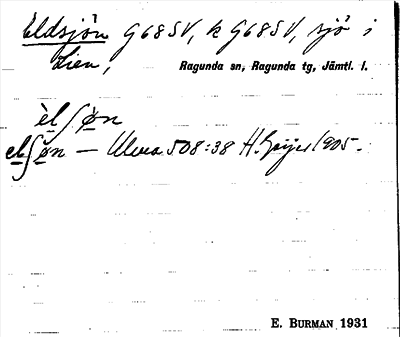 Eldsjön G68SV, k G68SV, sjö i
Lien, Ragunda sn, Ragunda tg, Jämtl. l.
èlʃøn
elʃøn — Ulma 508:38 H. Geijer 1905.
E. BURMAN 1931